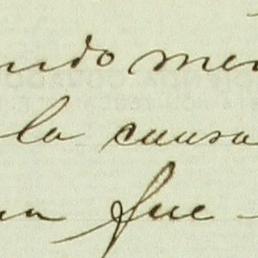 ndo men
la causa
na fue